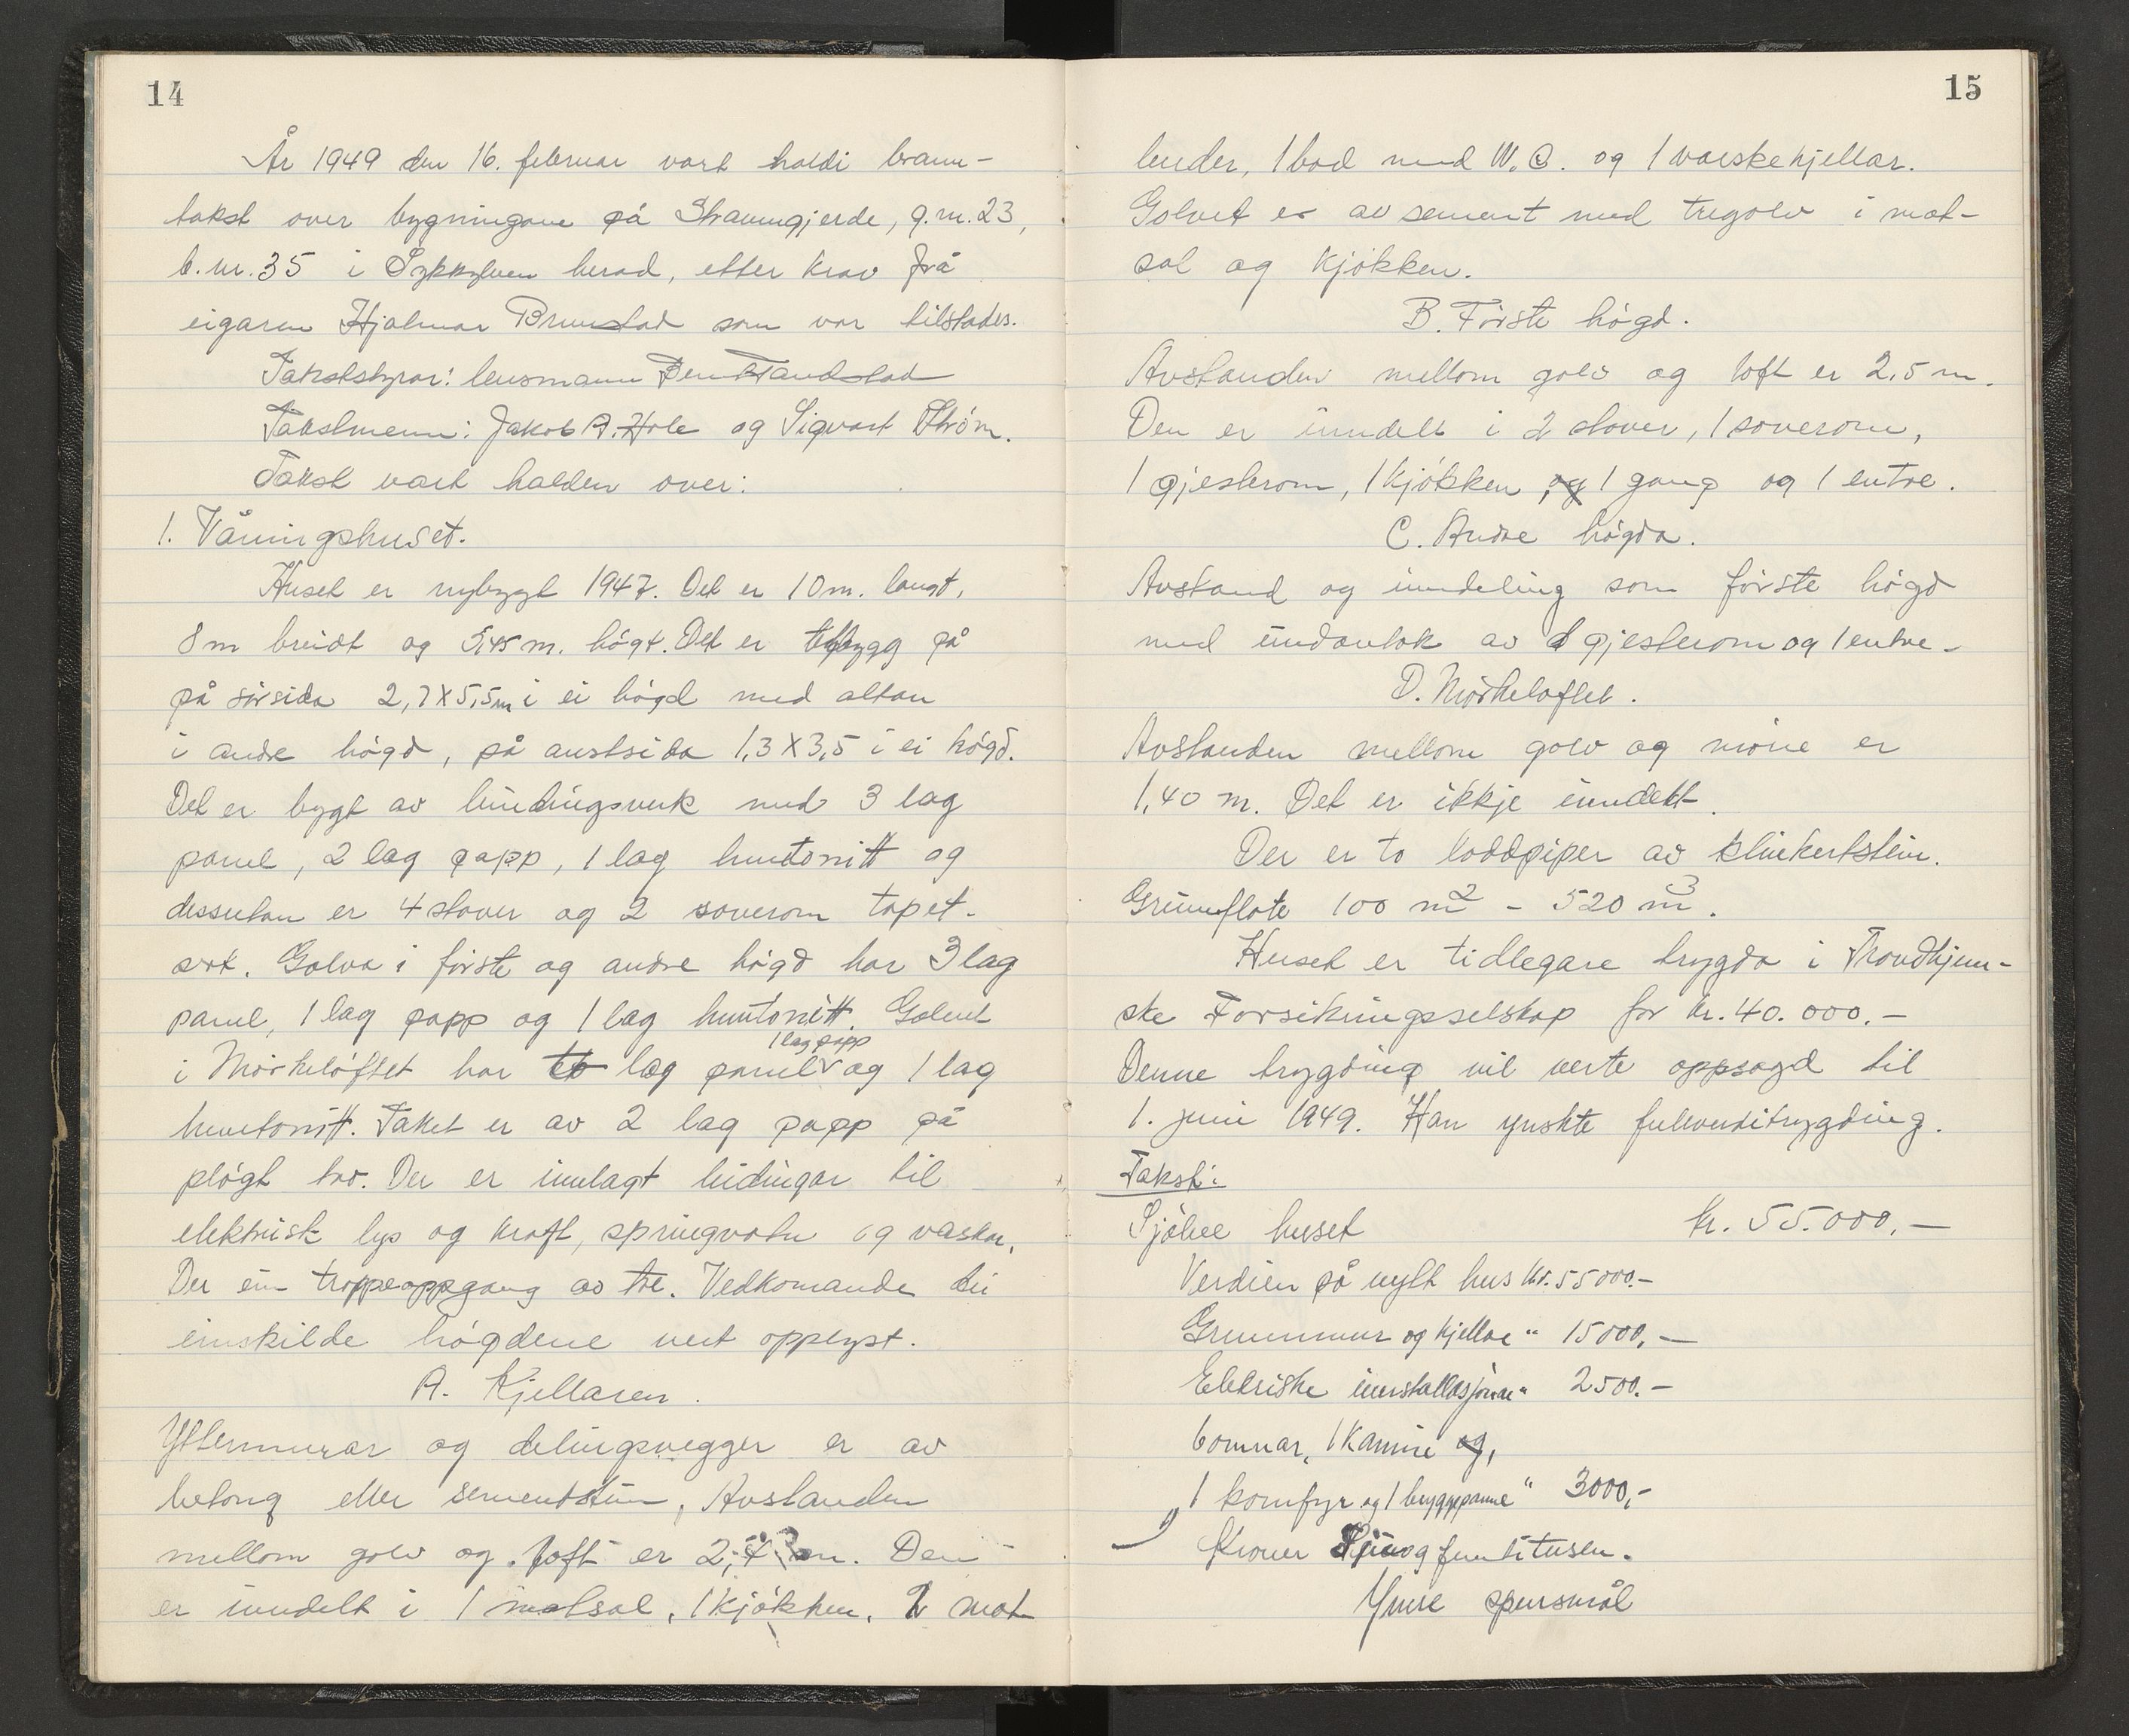 14
År 1949 den 16. februar vart haldi brann-
takst over bygningane på Straumgjerde, g.nr. 23,
b.nr. 35 i Sykkylven herad, etter krav frå
eigaren Hjalmar Brunstad som var tilstades.
Takststyrar: lensmann Tandstad
Takstmenn: Jakob A. Hole og Sigvart Strøm.
Takst vart halden over:
1. Våningshuset.
Huset er nybygt 1947. Det er 10 m. langt,
8 m breidt og 5,45 m. högt. Det er tilbygg på
på sörsida 2,7 X 5,5 m i ei högd med altan
i andre högd, på austsida 1,3 X 3,5 i ei högd.
Det er bygt av bindingsverk med 3 lag
panel, 2 lag papp, 1 lag huntonitt og
dessutan er 4 stover og 2 soverom tapet-
sert. Golva i förste og andre högd har 3 lag
panel, 1 lag papp og 1 lag huntonitt. Golvet
i Mörkeloftet har to lag panel 1 lag papp og 1 lag
huntonitt. Taket er av 2 lag papp på
plögt tro. Der er innlagt leidingar til
elektrisk lys og kraft, springvatn og vaskar.
Der ein trappeoppgang av tre. Vedkomande dei
einskilde högdene vert opplyst.
A. Kjellaren.
Yttermurar og delingsvegger er av
betong eller sementstein. Avstanden
mellom golv og loft er 2, m. Den
er inndelt i 1 matsal, 1 kjökken, 2 mat
15
bender, 1 bad med W.C. og 1 vaskekjellar.
Golvet er av sement med tregolv i mat-
sal og kjökken.
B. Förste högd.
Avstanden mellom golv og loft er 2,5 m.
Den er inndelt i 2 stover, 1 soverom,
1 gjesterom, 1 kjökken, og 1 gang og 1 entre.
C. Andre högda.
Avstand og inndeling som förste högd
med undantak av 1 gjesterom og 1 entre.
D. Mörkeloftet.
Avstanden mellom golv og möne er
1,40 m. Det er ikkje inndelt.
Der er to loddpiper av klinkertstein.
Grunnflate 100 m2 - 520 m3.
Huset er tidlegare trygda i Trondhjem-
ske Forsikringsselskap for kr. 40.000.-
Denne trygding vil verte oppsagd til
1. juni 1949. Han ynskte fullverditrygding.
Takst:
Sjölve huset kr. 55.000,-
Verdien på nytt hus kr. 55000.-
Grunnmur og kjellar " 15000,-
Elektriske innstallasjonar " 2500.-
6 omnar, 1 kamin og,
1 komfyr og 1 bryggepanne " 3000,-
Kroner femti tusen.
Ymse spursmål